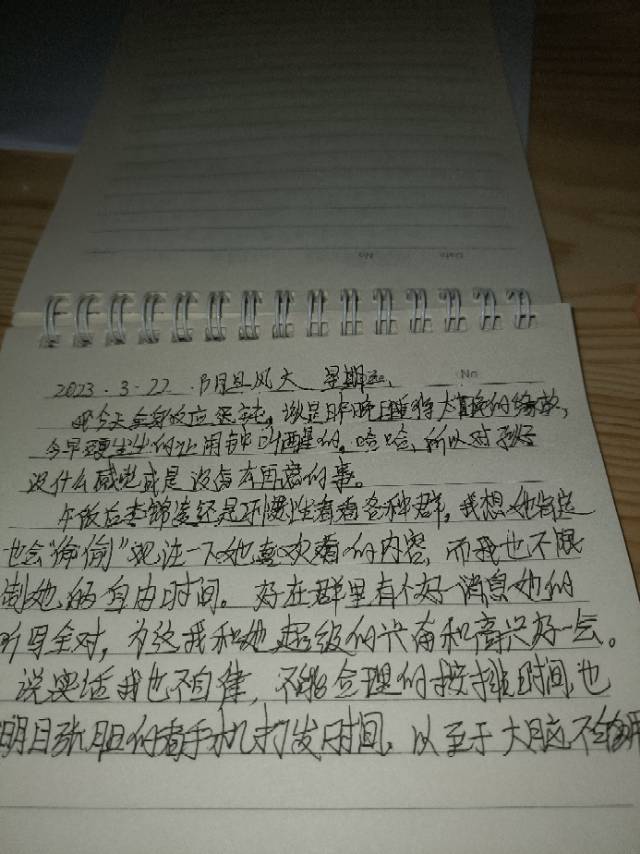 Date No
No
2023.3.22 阴且风大 星期三
今天全身反应迟钝,该是昨晚睡得太晚的缘故,
今早硬生生的让闹钟叫醒的。哈哈,所以对
没什么感觉或是没有在意的事。
午饭后李锦 还是习惯性看看各种群,我想她肯定
也会“偷偷”观注一下她喜欢看的内容,而我也不限
制她的自由时间。好在群里有个好消息她的
听写全对,为这我和她超级的兴奋和高兴好一会。
说实话我也不自律,不能合理的按排时间,也
明目张胆的看手机打发时间,以至于大脑不